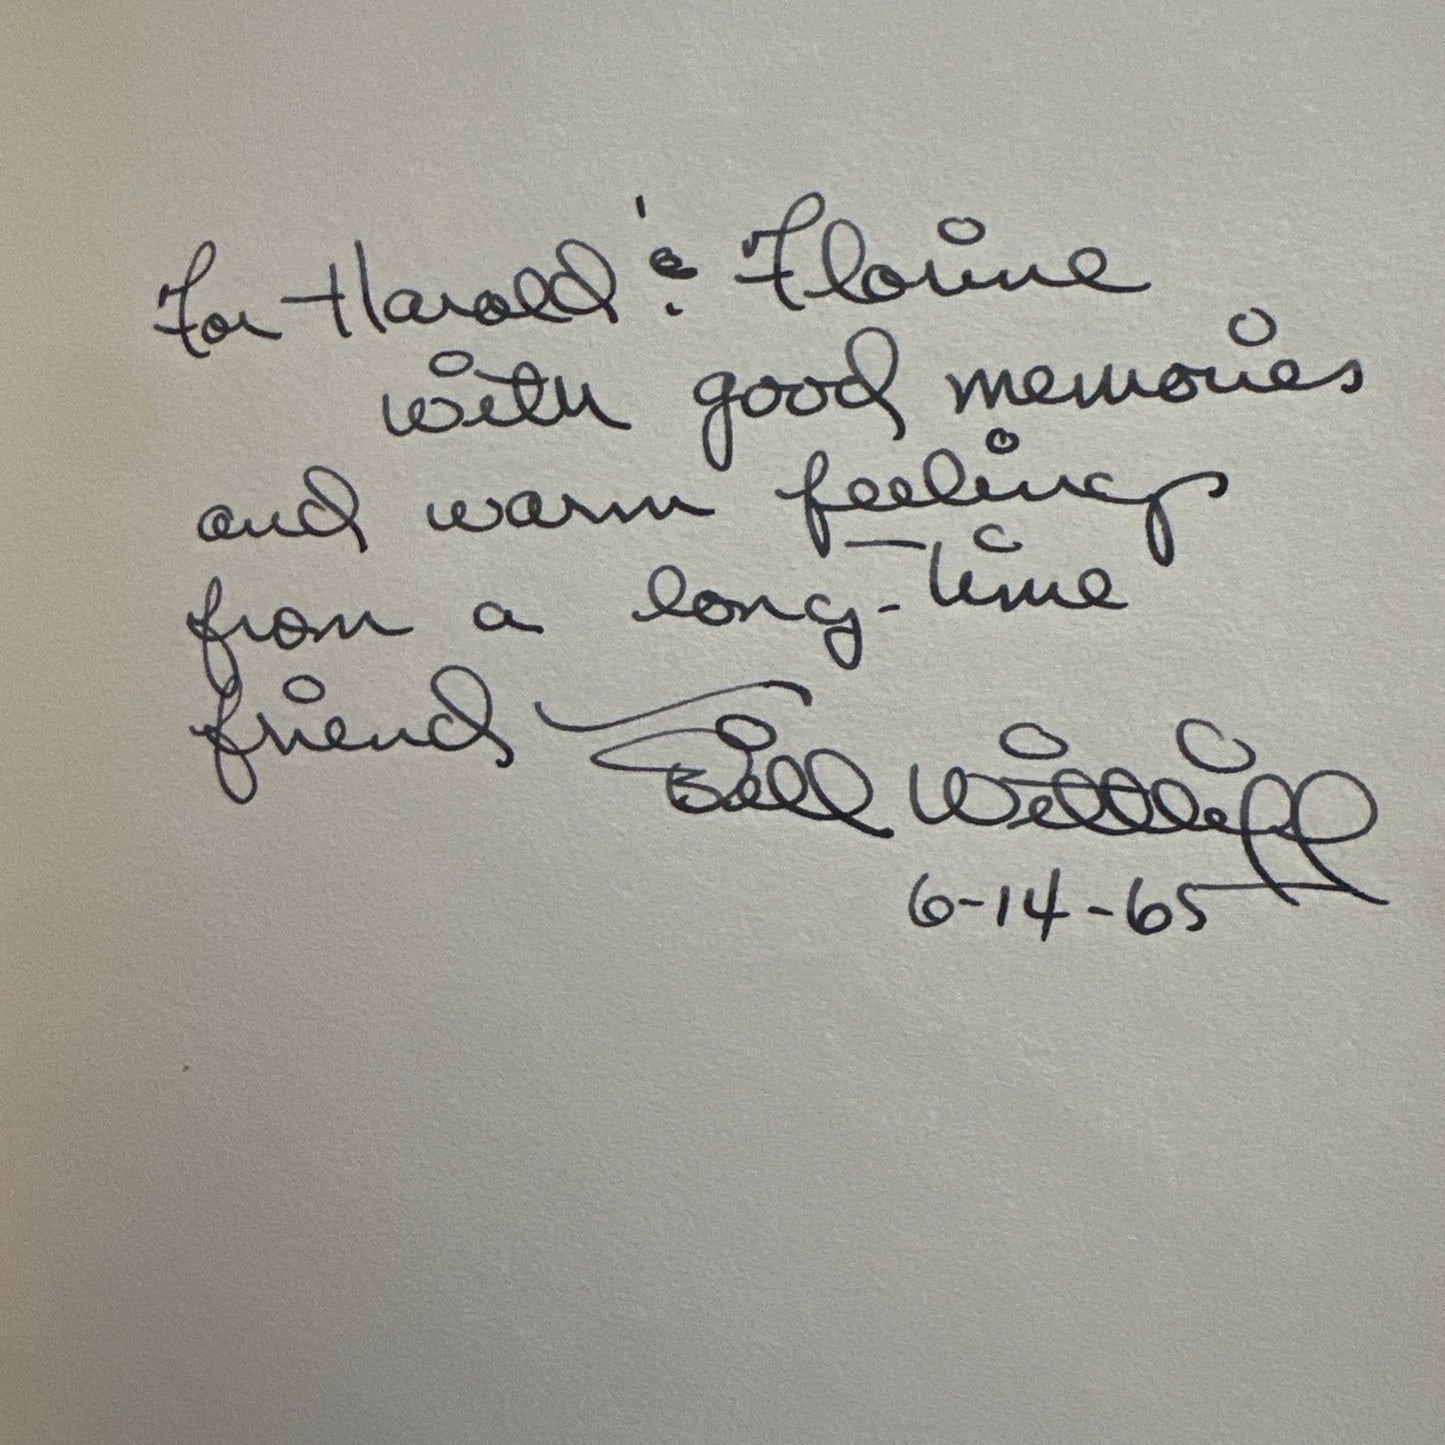 For Harold & Florine
with good memories
and warm feelings
from a long-time
friend
Bill Wittliff
6-14-65